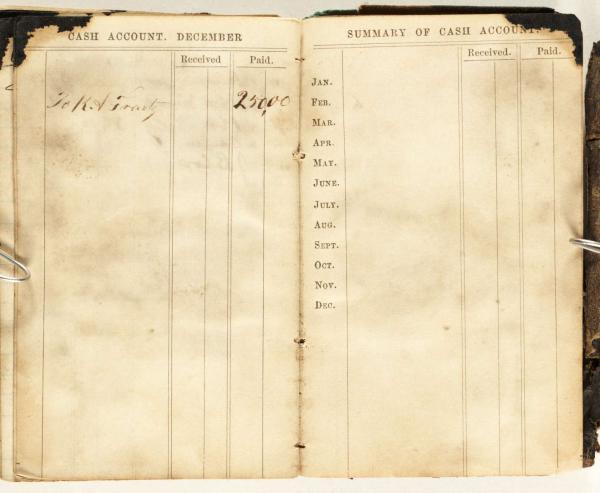 CASH ACCOUNT. DECEMBER
Received Paid.
To R A 250,00
SUMMARY OF CASH ACCOUNT.
Received. Paid.
JAN.
FEB.
MAR.
APR.
MAY.
JUNE.
JULY.
AUG.
SEPT.
OCT.
NOV.
DEC.